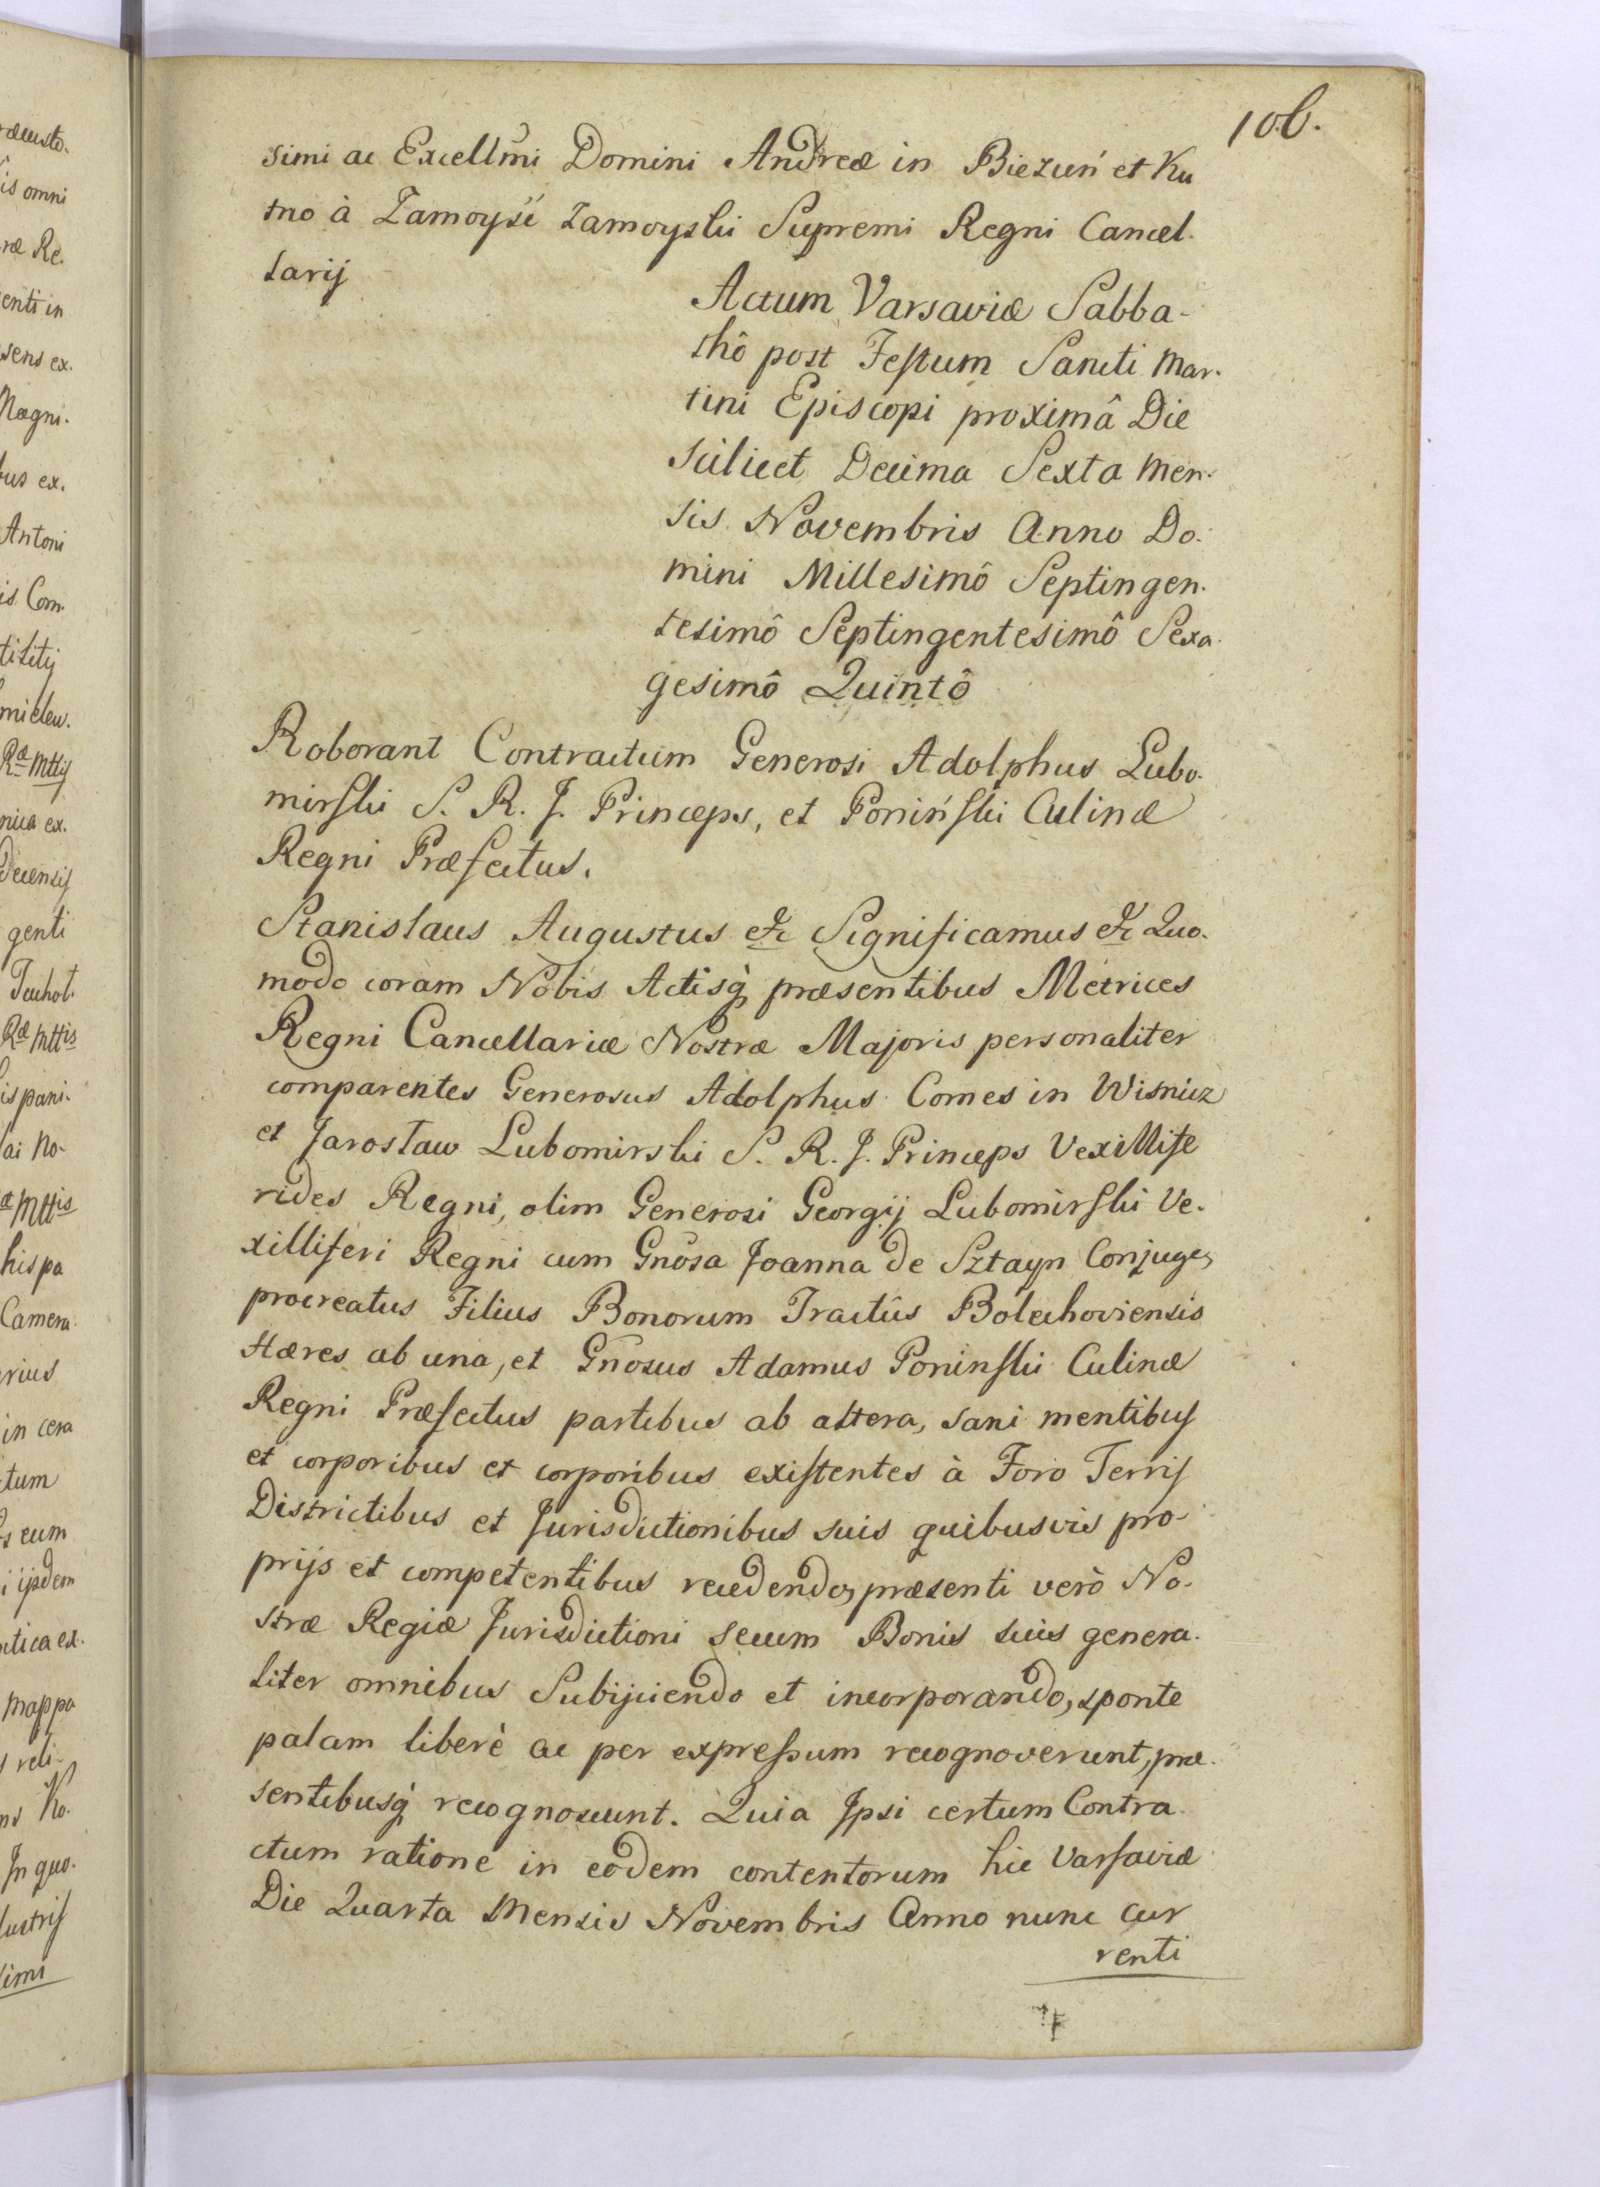 106.
simi ac Excellm̃i Domini Andreæ in Biezuń et Ku
tno à Zamoyśe Zamoyski Supremi Regni Cancel.
larij
Actum Varsaviæ Sabba-
thô post Festum Sancti Mar.
tini Episcopi proximâ Die
scilicet Decima Sexta Men.
sis Novembris Anno Do.
mini Millesimô Septingen.
tesimô Septingentesimô Sexa.
gesimô Quintô
Roborant Contractum Generosi Adolphus Lubo.
mirski S. R. J. Princeps, et Poniński Culinæ
Regni Præfectus.
Stanislaus Augustus &c Significamus &c Quo.
modo coram Nobis Actisq̀ præsentibus Metrices
Regni Cancellariæ Nostræ Majoris personaliter
comparentes Generosus Adolphus Comes in Wisnicz
et Jarosław Lubomirski S. R. J. Princeps Vexillife
rides Regni, olim Generosi Georgij Lubomirski Ve.
xilliferi Regni cum Gñosa Joanna de Sztayn Conjuge,
procreatus Filius Bonorum Tractûs Bolechoviensis
Hæres ab una, et Gñosus Adamus Poninski Culinæ
Regni Præfectus partibus ab altera, sani mentibus
et corporibus et corporibus existentes à Foro Terris
Districtibus et Jurisdictionibus suis quibusvis pro-
prijs et competentibus recedendo, præsenti verò No.
stræ Regiæ Jurisdictioni secum Bonis suis genera.
liter omnibus Subijciendo et incorporando, sponte
palam liberè ac per expressum recognoverunt, præ.
sentibusq̀ recognoscunt. Quia Ipsi certum Contra.
ctum ratione in eodem contentorum hic Varsaviæ
Die Quarta Mensis Novembris Anno nunc cur
renti
is omni
ræ Re.
enti in
sens ex.
Magni.
bus ex.
Antoni
is Com.
titity
Ræ Mttis
nica ex.
genti
Tuchol.
Ræ Mttis
ispani.
æ Mttis
hispa
Camera
rius
in cera
tum
eum
ijsdem
ntica ex.
mappa
reli-
No.
In quo.
lustris
simi